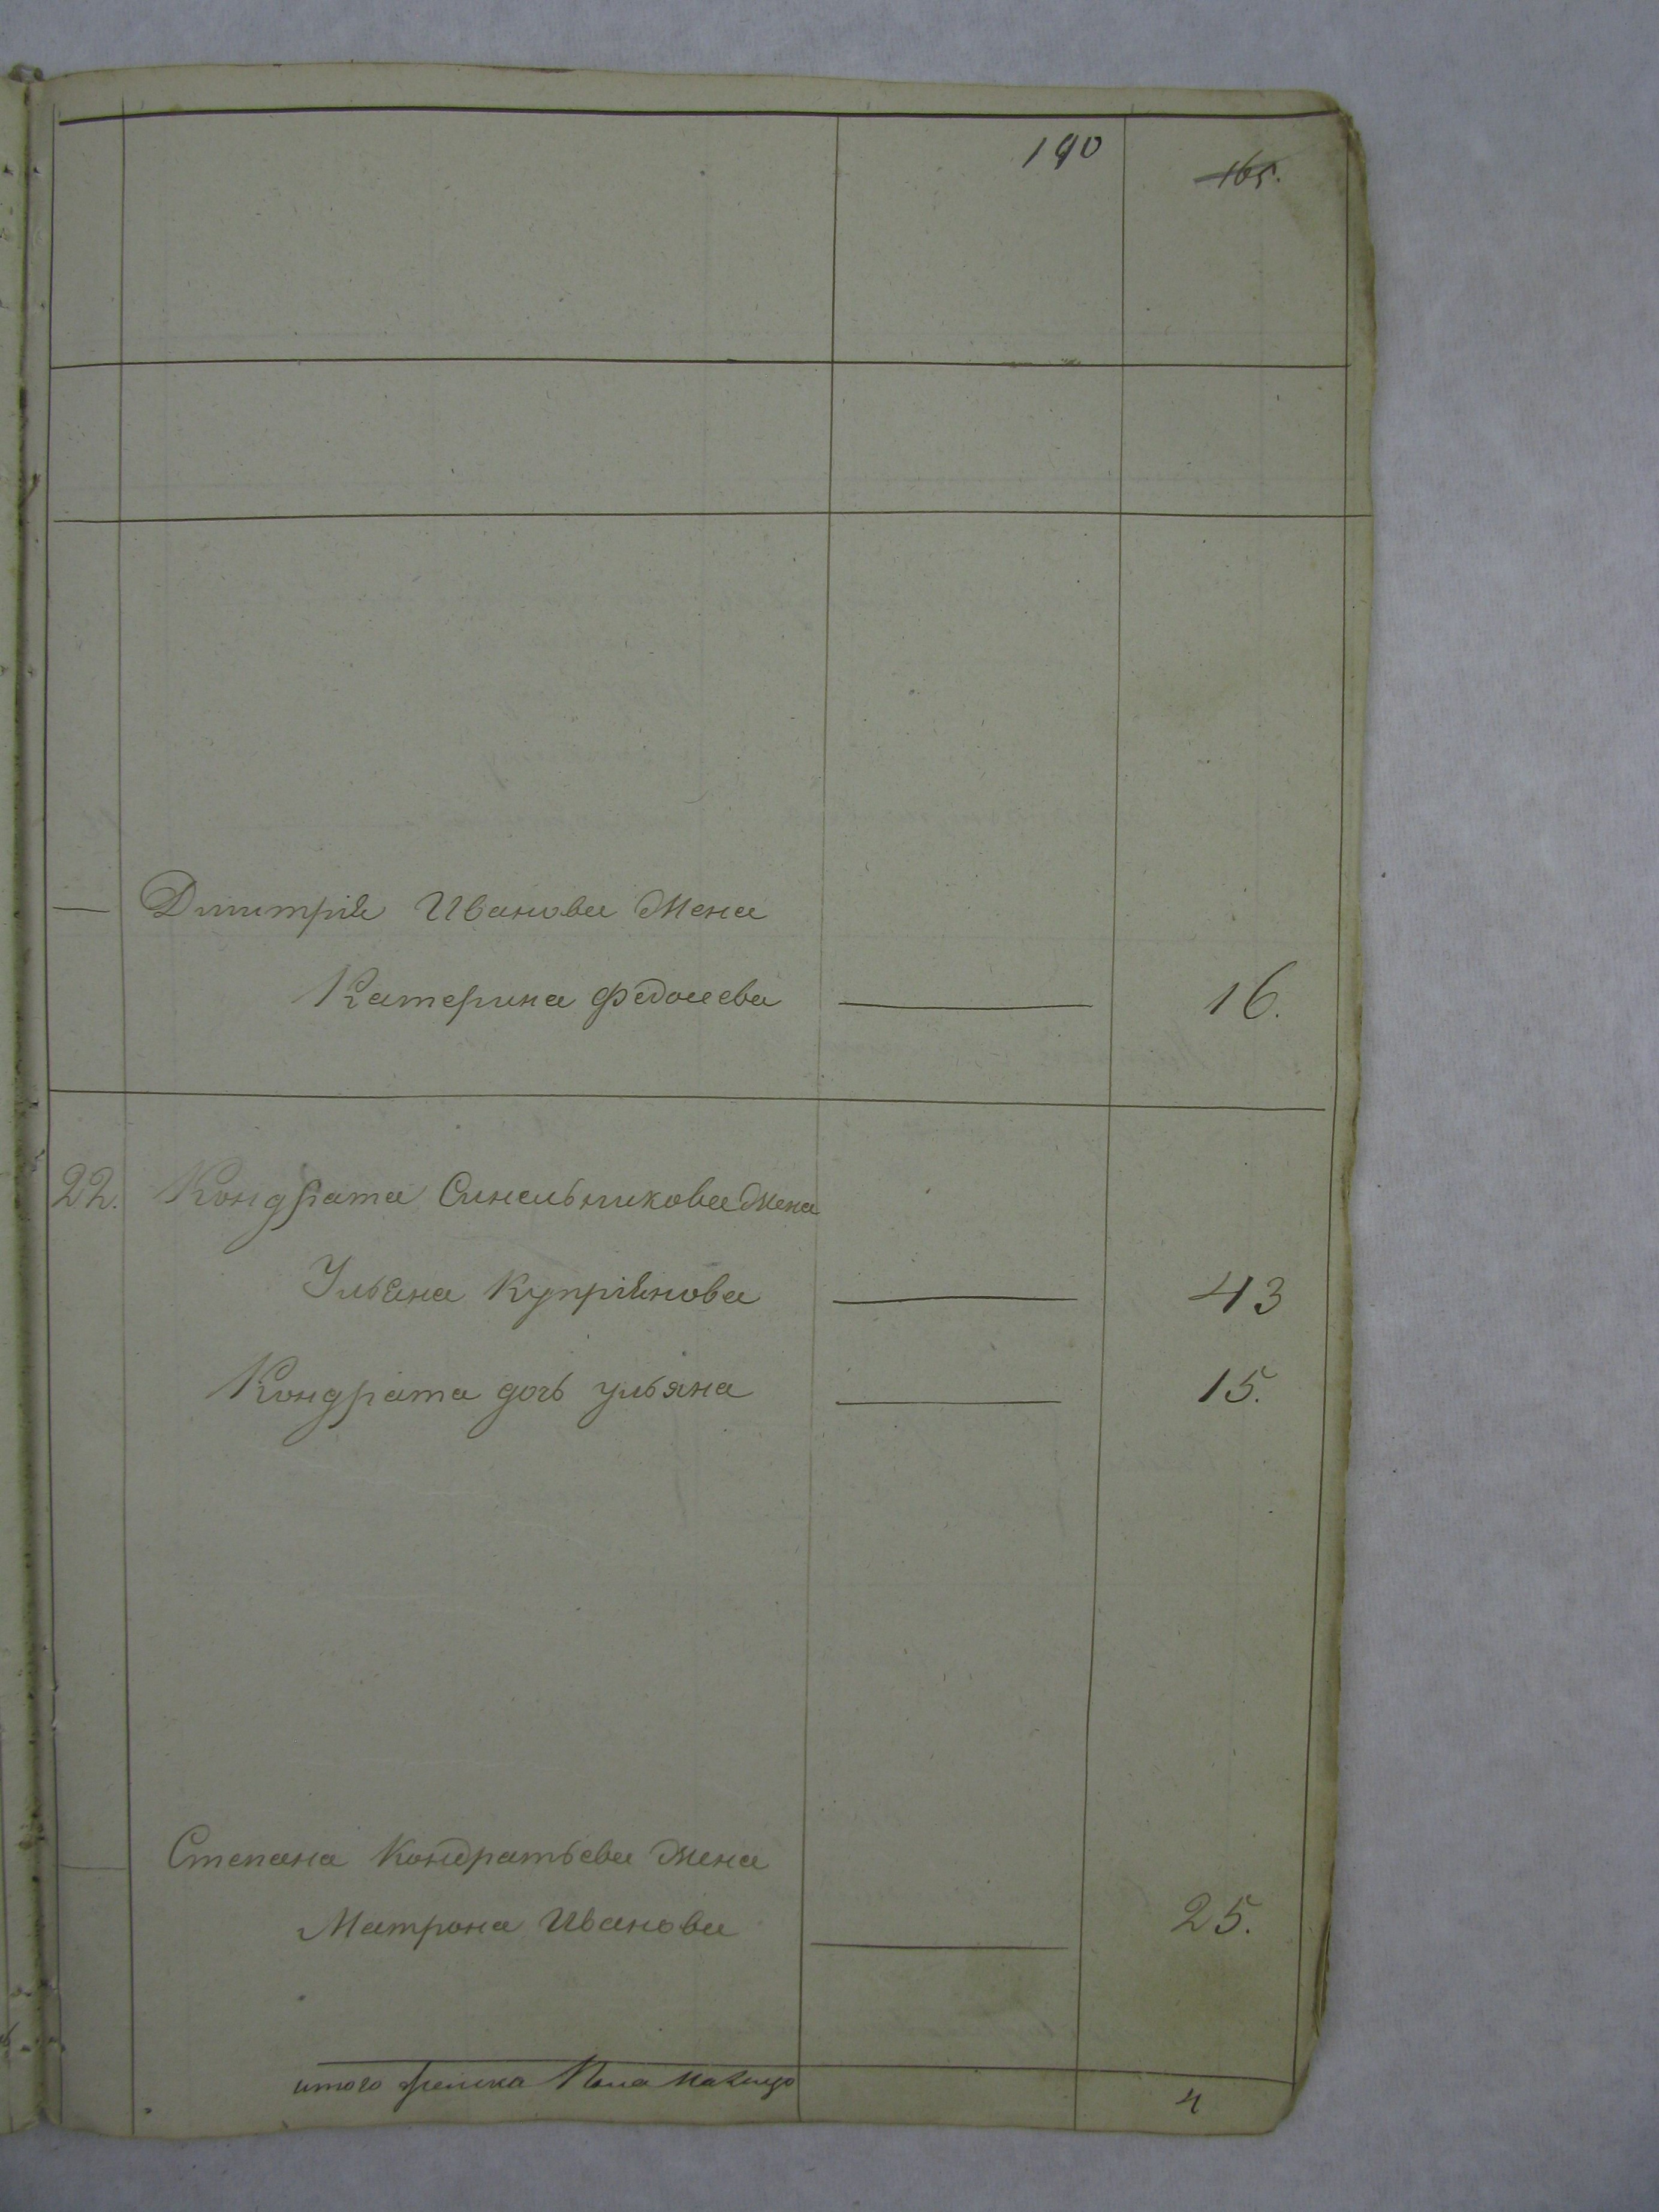 190
165.
— Дмитрiя Иванова жена
Катерина Федосева — 16.
22. Кондрата Синельникова жена
Ульяна Купрiянова — 43
Кондрата дочь ульяна — 15.
— Степана Кондратьева жена
Матрона Иванова — 25.
итого женска Пола налицо 4